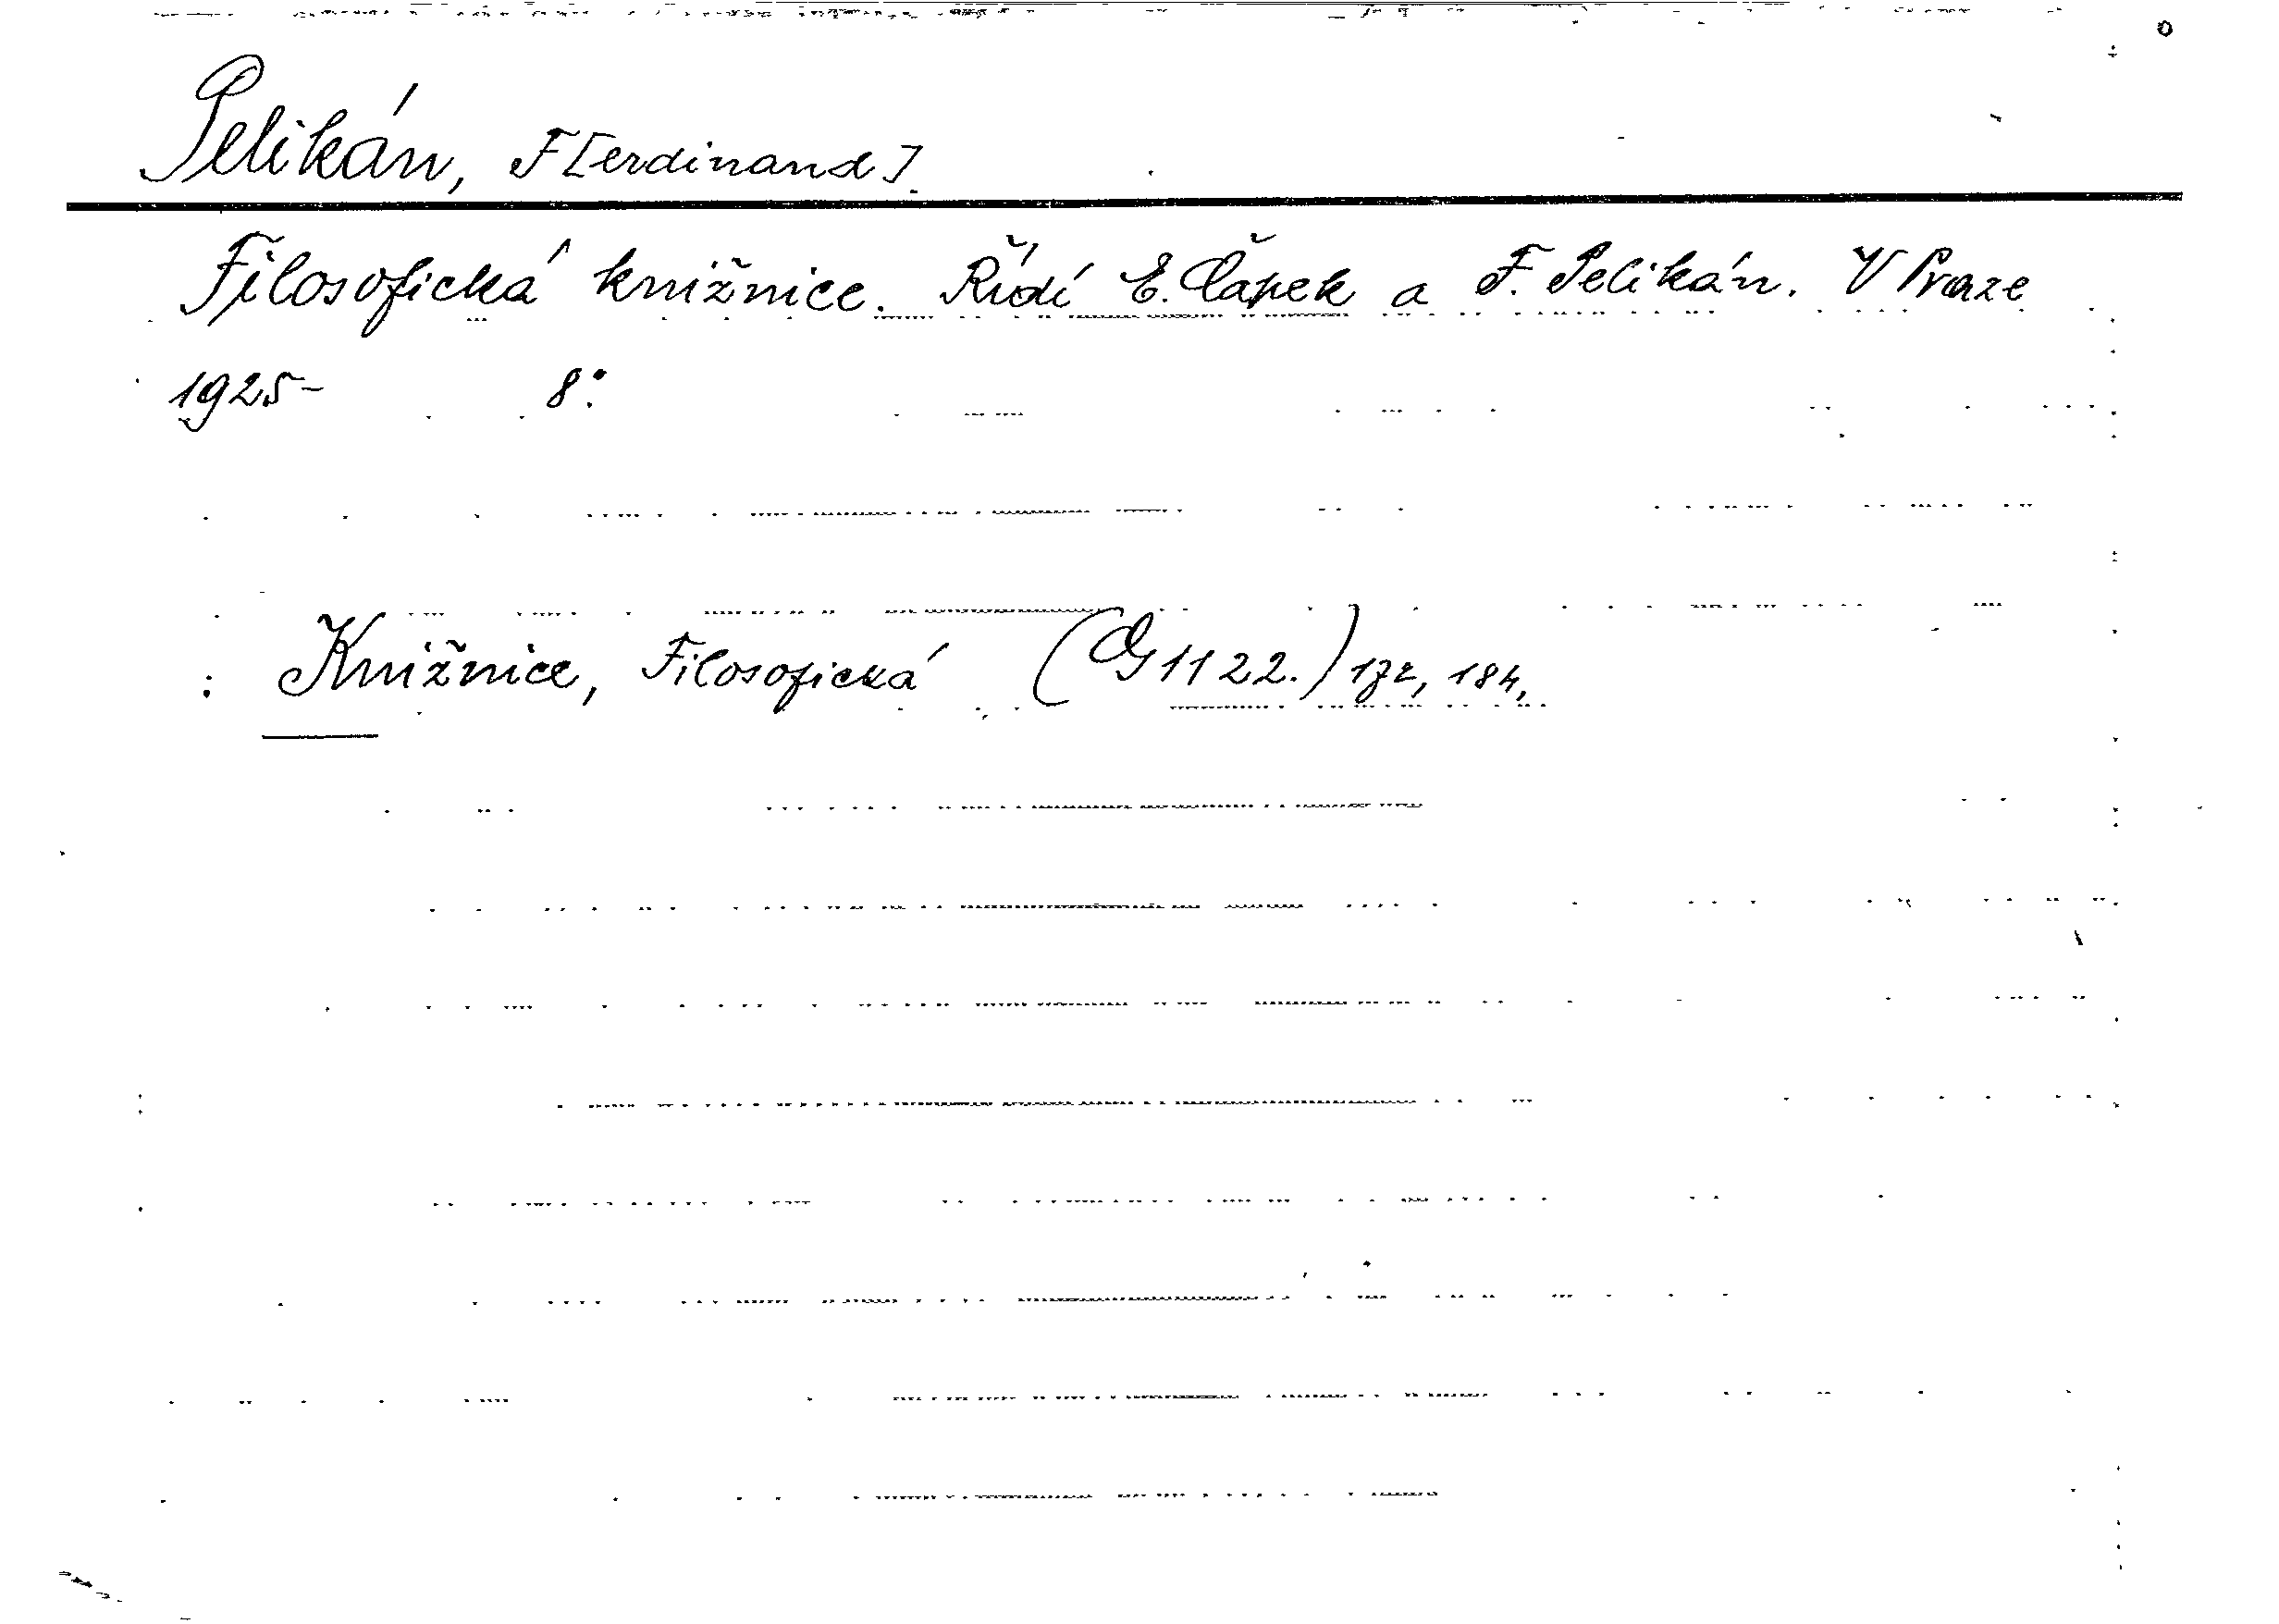 Pelikán, F[erdinand].
Filosofická knižnice. Řídí E. Čapek a F. Pelikán. V Praze
1925- 8°.
Knižnice, Filosofická (G 1122.) 184,